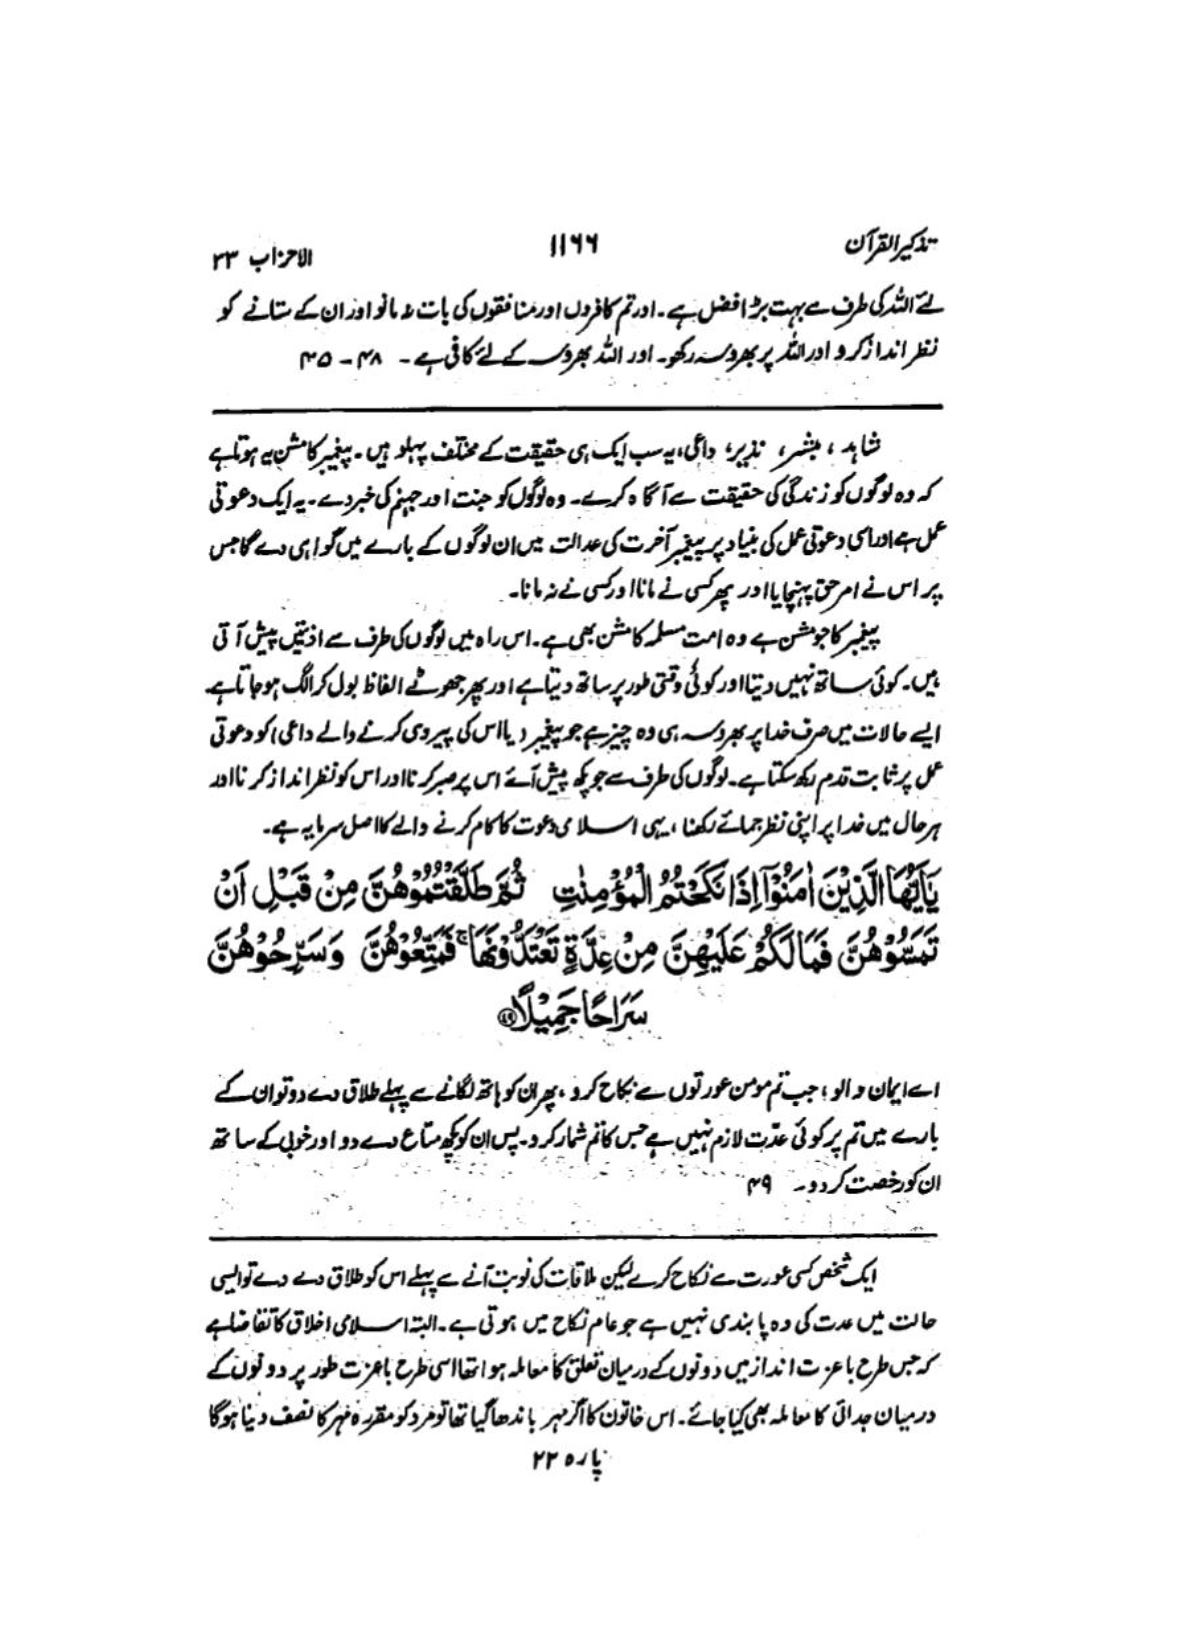 تذکیر القرآن ۱۱۶۶ الاحزاب ۳۳
لئے اللہ کی طرف سے بہت بڑا فضل ہے۔ اور تم کافروں اور منافقوں کی بات نہ مانو اور ان کے ستانے کو
نظر انداز کرو اور اللہ پر بھروسہ رکھو۔ اور اللہ بھروسہ کے لئے کافی ہے۔ ۴۸ - ۴۵
شاہد، مبشر، نذیر، داعی، یہ سب ایک ہی حقیقت کے مختلف پہلو ہیں۔ پیغمبر کا مشن یہ ہوتا ہے
کہ وہ لوگوں کو زندگی کی حقیقت سے آگاہ کرے۔ وہ لوگوں کو جنت اور جہنم کی خبر دے۔ یہ ایک دعوتی
عمل ہے اور اسی دعوتی عمل کی بنیاد پر پیغمبر آخرت کی عدالت میں ان لوگوں کے بارے میں گواہی دے گا جس
پر اس نے امر حق پہنچایا اور پھر کسی نے مانا اور کسی نے نہ مانا۔
پیغمبر کا جو مشن ہے وہ امت مسلمہ کا مشن بھی ہے۔ اس راہ میں لوگوں کی طرف سے اذیتیں پیش آتی
ہیں۔ کوئی ساتھ نہیں دیتا اور کوئی وقتی طور پر ساتھ دیتا ہے اور پھر جھوٹے الفاظ بول کر الگ ہو جاتا ہے۔
ایسے حالات میں صرف خدا پر بھروسہ ہی وہ چیز ہے جو پیغمبر (یا اس کی پیروی کرنے والے داعی) کو دعوتی
عمل پر ثابت قدم رکھ سکتا ہے۔ لوگوں کی طرف سے جو کچھ پیش آئے اس پر صبر کرنا اور اس کو نظر انداز کرنا اور
ہر حال میں خدا پر اپنی نظر جمائے رکھنا، یہی اسلامی دعوت کا کام کرنے والے کا اصل سرمایہ ہے۔
يٰۤاَيُّهَا الَّذِيْنَ اٰمَنُوْۤا اِذَا نَكَحْتُمُ الْمُؤْمِنٰتِ ثُمَّ طَلَّقْتُمُوْهُنَّ مِنْ قَبْلِ اَنْ
تَمَسُّوْهُنَّ فَمَا لَكُمْ عَلَيْهِنَّ مِنْ عِدَّةٍ تَعْتَدُّوْنَهَا ۚ فَمَتِّعُوْهُنَّ وَسَرِّحُوْهُنَّ
سَرَاحًا جَمِيْلًا ۴۹
اے ایمان والو، جب تم مومن عورتوں سے نکاح کرو، پھر ان کو ہاتھ لگانے سے پہلے طلاق دے دو تو ان کے
بارے میں تم پر کوئی عدّت لازم نہیں ہے جس کا تم شمار کرو۔ پس ان کو کچھ متاع دے دو اور خوبی کے ساتھ
ان کو رخصت کر دو۔ ۴۹
ایک شخص کسی عورت سے نکاح کرے لیکن ملاقات کی نوبت آنے سے پہلے اس کو طلاق دے دے تو ایسی
حالت میں عدت کی وہ پابندی نہیں ہے جو عام نکاح میں ہوتی ہے۔ البتہ اسلامی اخلاق کا تقاضا ہے
کہ جس طرح باعزت انداز میں دونوں کے درمیان تعلق کا معاملہ ہوا تھا اسی طرح باعزت طور پر دونوں کے
درمیان جدائی کا معاملہ بھی کیا جائے۔ اس خاتون کا اگر مہر باندھا گیا تھا تو مرد کو مقررہ مہر کا نصف دینا ہوگا
پارہ ۲۲